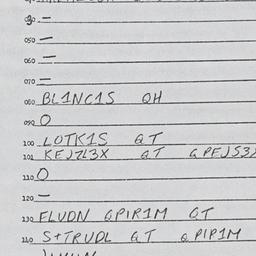 030 –
050 –
060 –
070 –
080 BL1NC1S QH
090 O
100 LOTK1S QT
101 KEJZL3X QT QPFJS3
110 O
120 –
130 FLUDN QPIR1M QT
140 S+TRUDL QT Q PIP1M